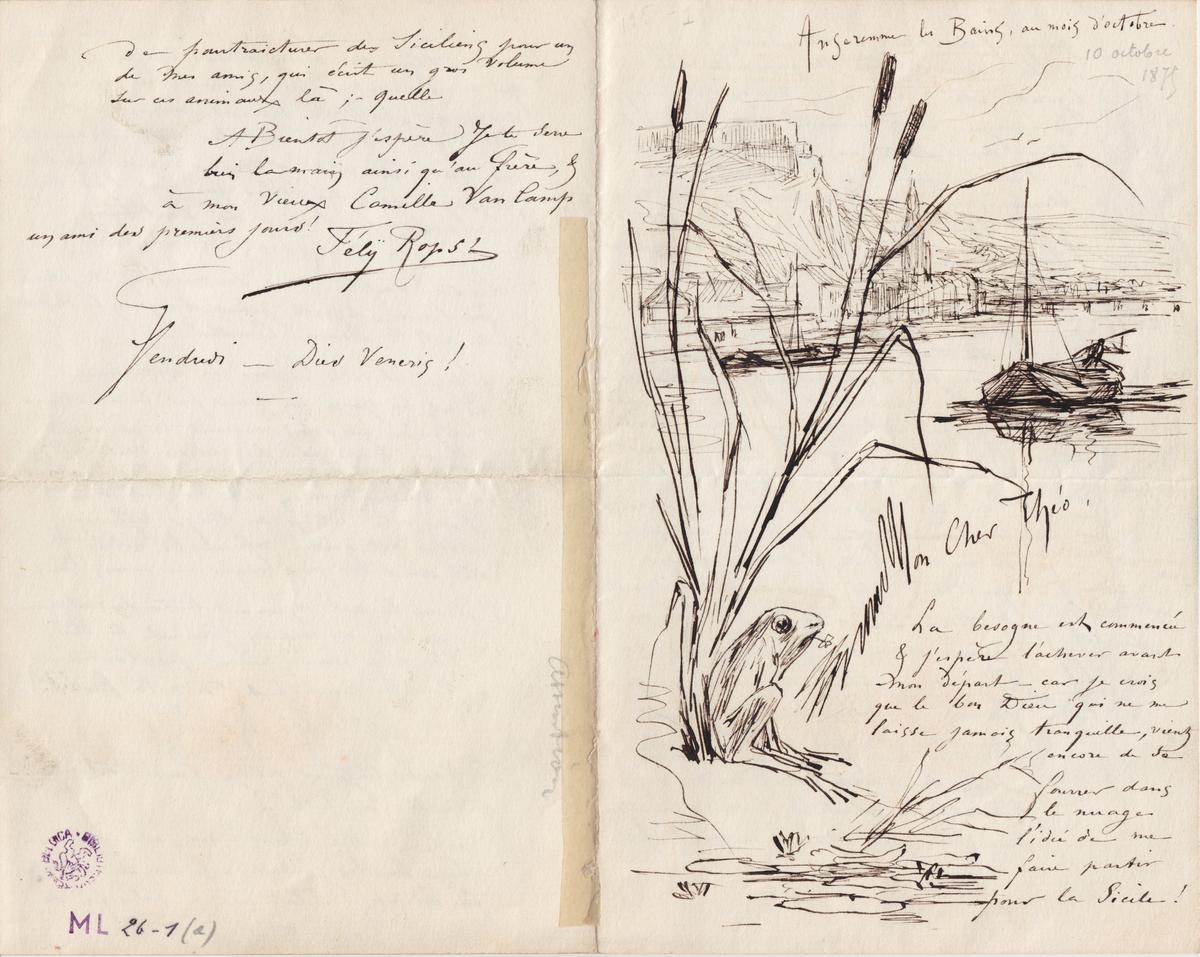 de pourtraicturer des Siciliens pour un
de mes amis, qui écrit un gros volume
sur ces animaux là ; - quelle
A Bientot j'espère Je te serre
bien la main ainsi qu'au frère, &
à mon vieux Camille Van Camp
un ami des premiers jours!
Fély Rops
Vendredi — Dies Veneris !
ML 26-1 (a)
Anseremme les Bains, au mois d'octobre.
10 octobre
1875
Mon Cher Théo,
La besogne est commencée
& j'espère l'achever avant
mon départ - car je crois
que le bon Dieu qui ne me
laisse jamais tranquille, vient
encore de se
fourrer dans
le nuage
l'idée de me
faire partir
pour la Sicile !